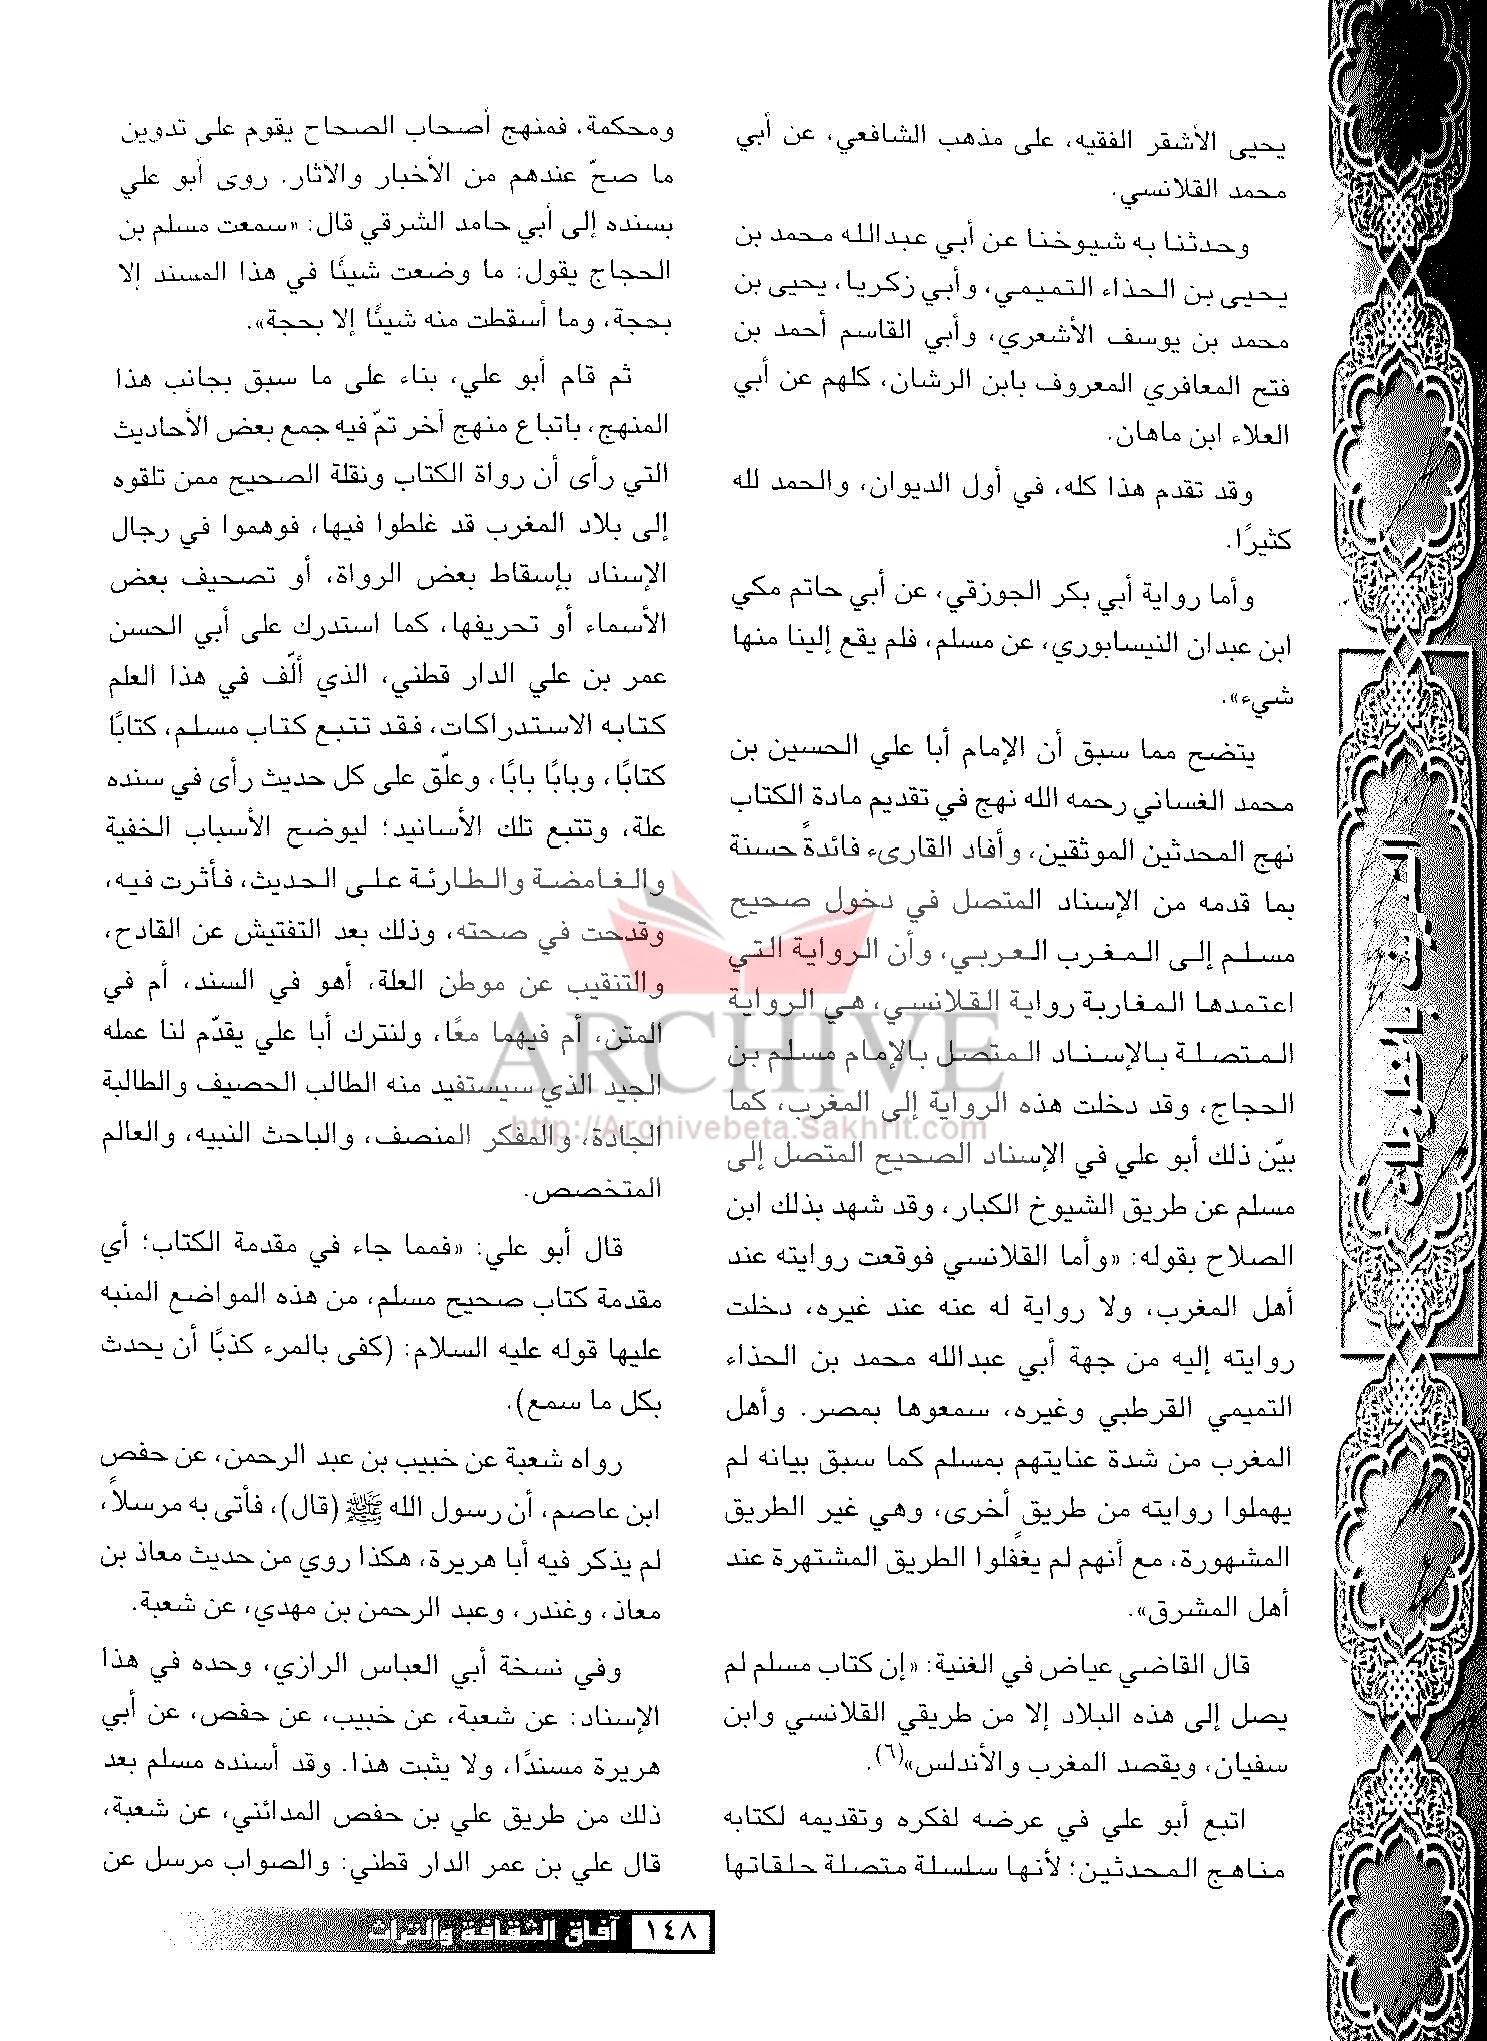 يحيى الأشقر الفقيه، على مذهب الشافعي، عن أبي
محمد القلانسي.
وحدثنا به شيوخنا عن أبي عبدالله محمد بن
يحيى بن الحذاء التميمي، وأبي زكريا، يحيى بن
محمد بن يوسف الأشعري، وأبي القاسم أحمد بن
فتح المعافري المعروف بابن الرشان، كلهم عن أبي
العلاء ابن ماهان.
وقد تقدم هذا كله، في أول الديوان، والحمد لله
كثيرًا.
وأما رواية أبي بكر الجوزقي، عن أبي حاتم مكي
ابن عبدان النيسابوري، عن مسلم، فلم يقع إلينا منها
شيء».
يتضح مما سبق أن الإمام أبا علي الحسين بن
محمد الغساني رحمه الله نهج في تقديم مادة الكتاب
نهج المحدثين الموثقين، وأفاد القارىء فائدةً حسنة
بما قدمه من الإسناد المتصل في دخول صحيح
مسلم إلى المغرب العربي، وأن الرواية التي
اعتمدها المغاربة رواية القلانسي، هي الرواية
المتصلة بالإسناد المتصل بالإمام مسلم بن
الحجاج، وقد دخلت هذه الرواية إلى المغرب، كما
بيّن ذلك أبو علي في الإسناد الصحيح المتصل إلى
مسلم عن طريق الشيوخ الكبار، وقد شهد بذلك ابن
الصلاح بقوله: «وأما القلانسي فوقعت روايته عند
أهل المغرب، ولا رواية له عنه عند غيره، دخلت
روايته إليه من جهة أبي عبدالله محمد بن الحذاء
التميمي القرطبي وغيره، سمعوها بمصر. وأهل
المغرب من شدة عنايتهم بمسلم كما سبق بيانه لم
يهملوا روايته من طريقٍ أخرى، وهي غير الطريق
المشهورة، مع أنهم لم يغفلوا الطريق المشتهرة عند
أهل المشرق».
قال القاضي عياض في الغنية: «إن كتاب مسلم لم
يصل إلى هذه البلاد إلا من طريقي القلانسي وابن
سفيان، ويقصد المغرب والأندلس»(٦).
اتبع أبو علي في عرضه لفكره وتقديمه لكتابه
مناهج المحدثين؛ لأنها سلسلة متصلة حلقاتها
ومحكمة، فمنهج أصحاب الصحاح يقوم على تدوين
ما صحّ عندهم من الأخبار والآثار. روى أبو علي
بسنده إلى أبي حامد الشرقي قال: «سمعت مسلم بن
الحجاج يقول: ما وضعت شيئًا في هذا المسند إلا
بحجة، وما أسقطت منه شيئًا إلا بحجة».
ثم قام أبو علي، بناء على ما سبق بجانب هذا
المنهج، باتباع منهج آخر تمّ فيه جمع بعض الأحاديث
التي رأى أن رواة الكتاب ونقلة الصحيح ممن تلقوه
إلى بلاد المغرب قد غلطوا فيها، فوهموا في رجال
الإسناد بإسقاط بعض الرواة، أو تصحيف بعض
الأسماء أو تحريفها، كما استدرك على أبي الحسن
عمر بن علي الدار قطني، الذي ألّف في هذا العلم
كتابه الاستدراكات، فقد تتبع كتاب مسلم، كتابًا
كتابًا، وبابًا بابًا، وعلّق على كل حديث رأى في سنده
علة، وتتبع تلك الأسانيد؛ ليوضح الأسباب الخفية
والغامضة والطارئة على الحديث، فأثرت فيه،
وقدحت في صحته، وذلك بعد التفتيش عن القادح،
والتنقيب عن موطن العلة، أهو في السند، أم في
المتن، أم فيهما معًا، ولنترك أبا علي يقدّم لنا عمله
الجيد الذي سيستفيد منه الطالب الحصيف والطالبة
الجادة، والمفكر المنصف، والباحث النبيه، والعالم
المتخصص.
قال أبو علي: «فمما جاء في مقدمة الكتاب؛ أي
مقدمة كتاب صحيح مسلم، من هذه المواضع المنبه
عليها قوله عليه السلام: (كفى بالمرء كذبًا أن يحدث
بكل ما سمع).
رواه شعبة عن خبيب بن عبد الرحمن، عن حفص
ابن عاصم، أن رسول الله ﷺ (قال)، فأتى به مرسلاً،
لم يذكر فيه أبا هريرة، هكذا روي من حديث معاذ بن
معاذ، وغندر، وعبد الرحمن بن مهدي، عن شعبة.
وفي نسخة أبي العباس الرازي، وحده في هذا
الإسناد: عن شعبة، عن خبيب، عن حفص، عن أبي
هريرة مسندًا، ولا يثبت هذا. وقد أسنده مسلم بعد
ذلك من طريق علي بن حفص المدائني، عن شعبة،
قال علي بن عمر الدار قطني: والصواب مرسل عن
ARCHIVE
http://Archivebeta.Sakhrit.com
١٤٨ آفاق الثقافة والتراث